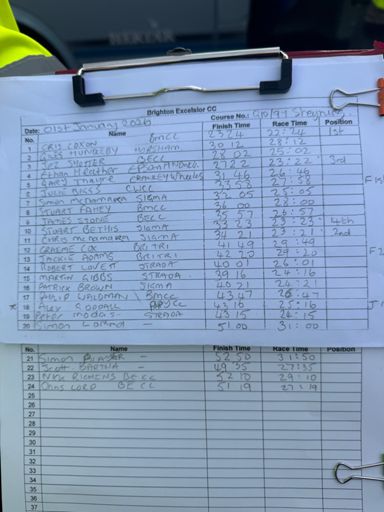 Brighton Excelsior CC
Date: 01st January 2026 Course No.: G10/97 Steyning
No. Name Finish Time Race Time Position
1 CHRIS COXON BMCC 23 24 22:24 1st
2 GILES HUNNEBY HORSHAM 30 12 28:12
3 SHOTTER BECC 28 02 25:02
4 Ethan Heather 27 22 23:22 3rd
5 GARY THAYRE CRAWLEY WHEELERS 31 46 26:46
6 JULIE BIGGS CWCC 33 58 27:58
7 Simon McNAMARA SIGMA 32 05 25:05
8 STUART FAHEY BMCC 36 00 28:00
9 JAMES STONE BECC 35 57 26:57
10 STUART BETHIS SIGMA 33 23 4th
11 CHRIS McNAMARA SIGMA 34 21 23:21 2nd
12 GRAEME COX BRITRI 41 49 29:49
13 JACKIE ADAMS BRITRI 42 20 29:20
14 ROBERT LOVETT STRADA 40 01 26:01
15 MARTIN GIBBS STRADA 39 16 24:16
16 PATRICK BROWN SIGMA 40 21 24:21
17 PHILIP WALDMAN BMCC 43 47 26:47
18 ALEX GOODALL 43 16 25:16
19 Peter Modas STRADA 43 15 24:15
20 Simon 51 00 31:00
No. Name Finish Time Race Time Position
21 Simon — 52 50 31:50
22 Scott BARTHA — 49 35 27:35
23 Nick RICHENS BECC 52 10 29:10
24 Chris LORD BECC 51 19 27:19
25
26
27
28
29
30
31
32
33
34
35
36
37